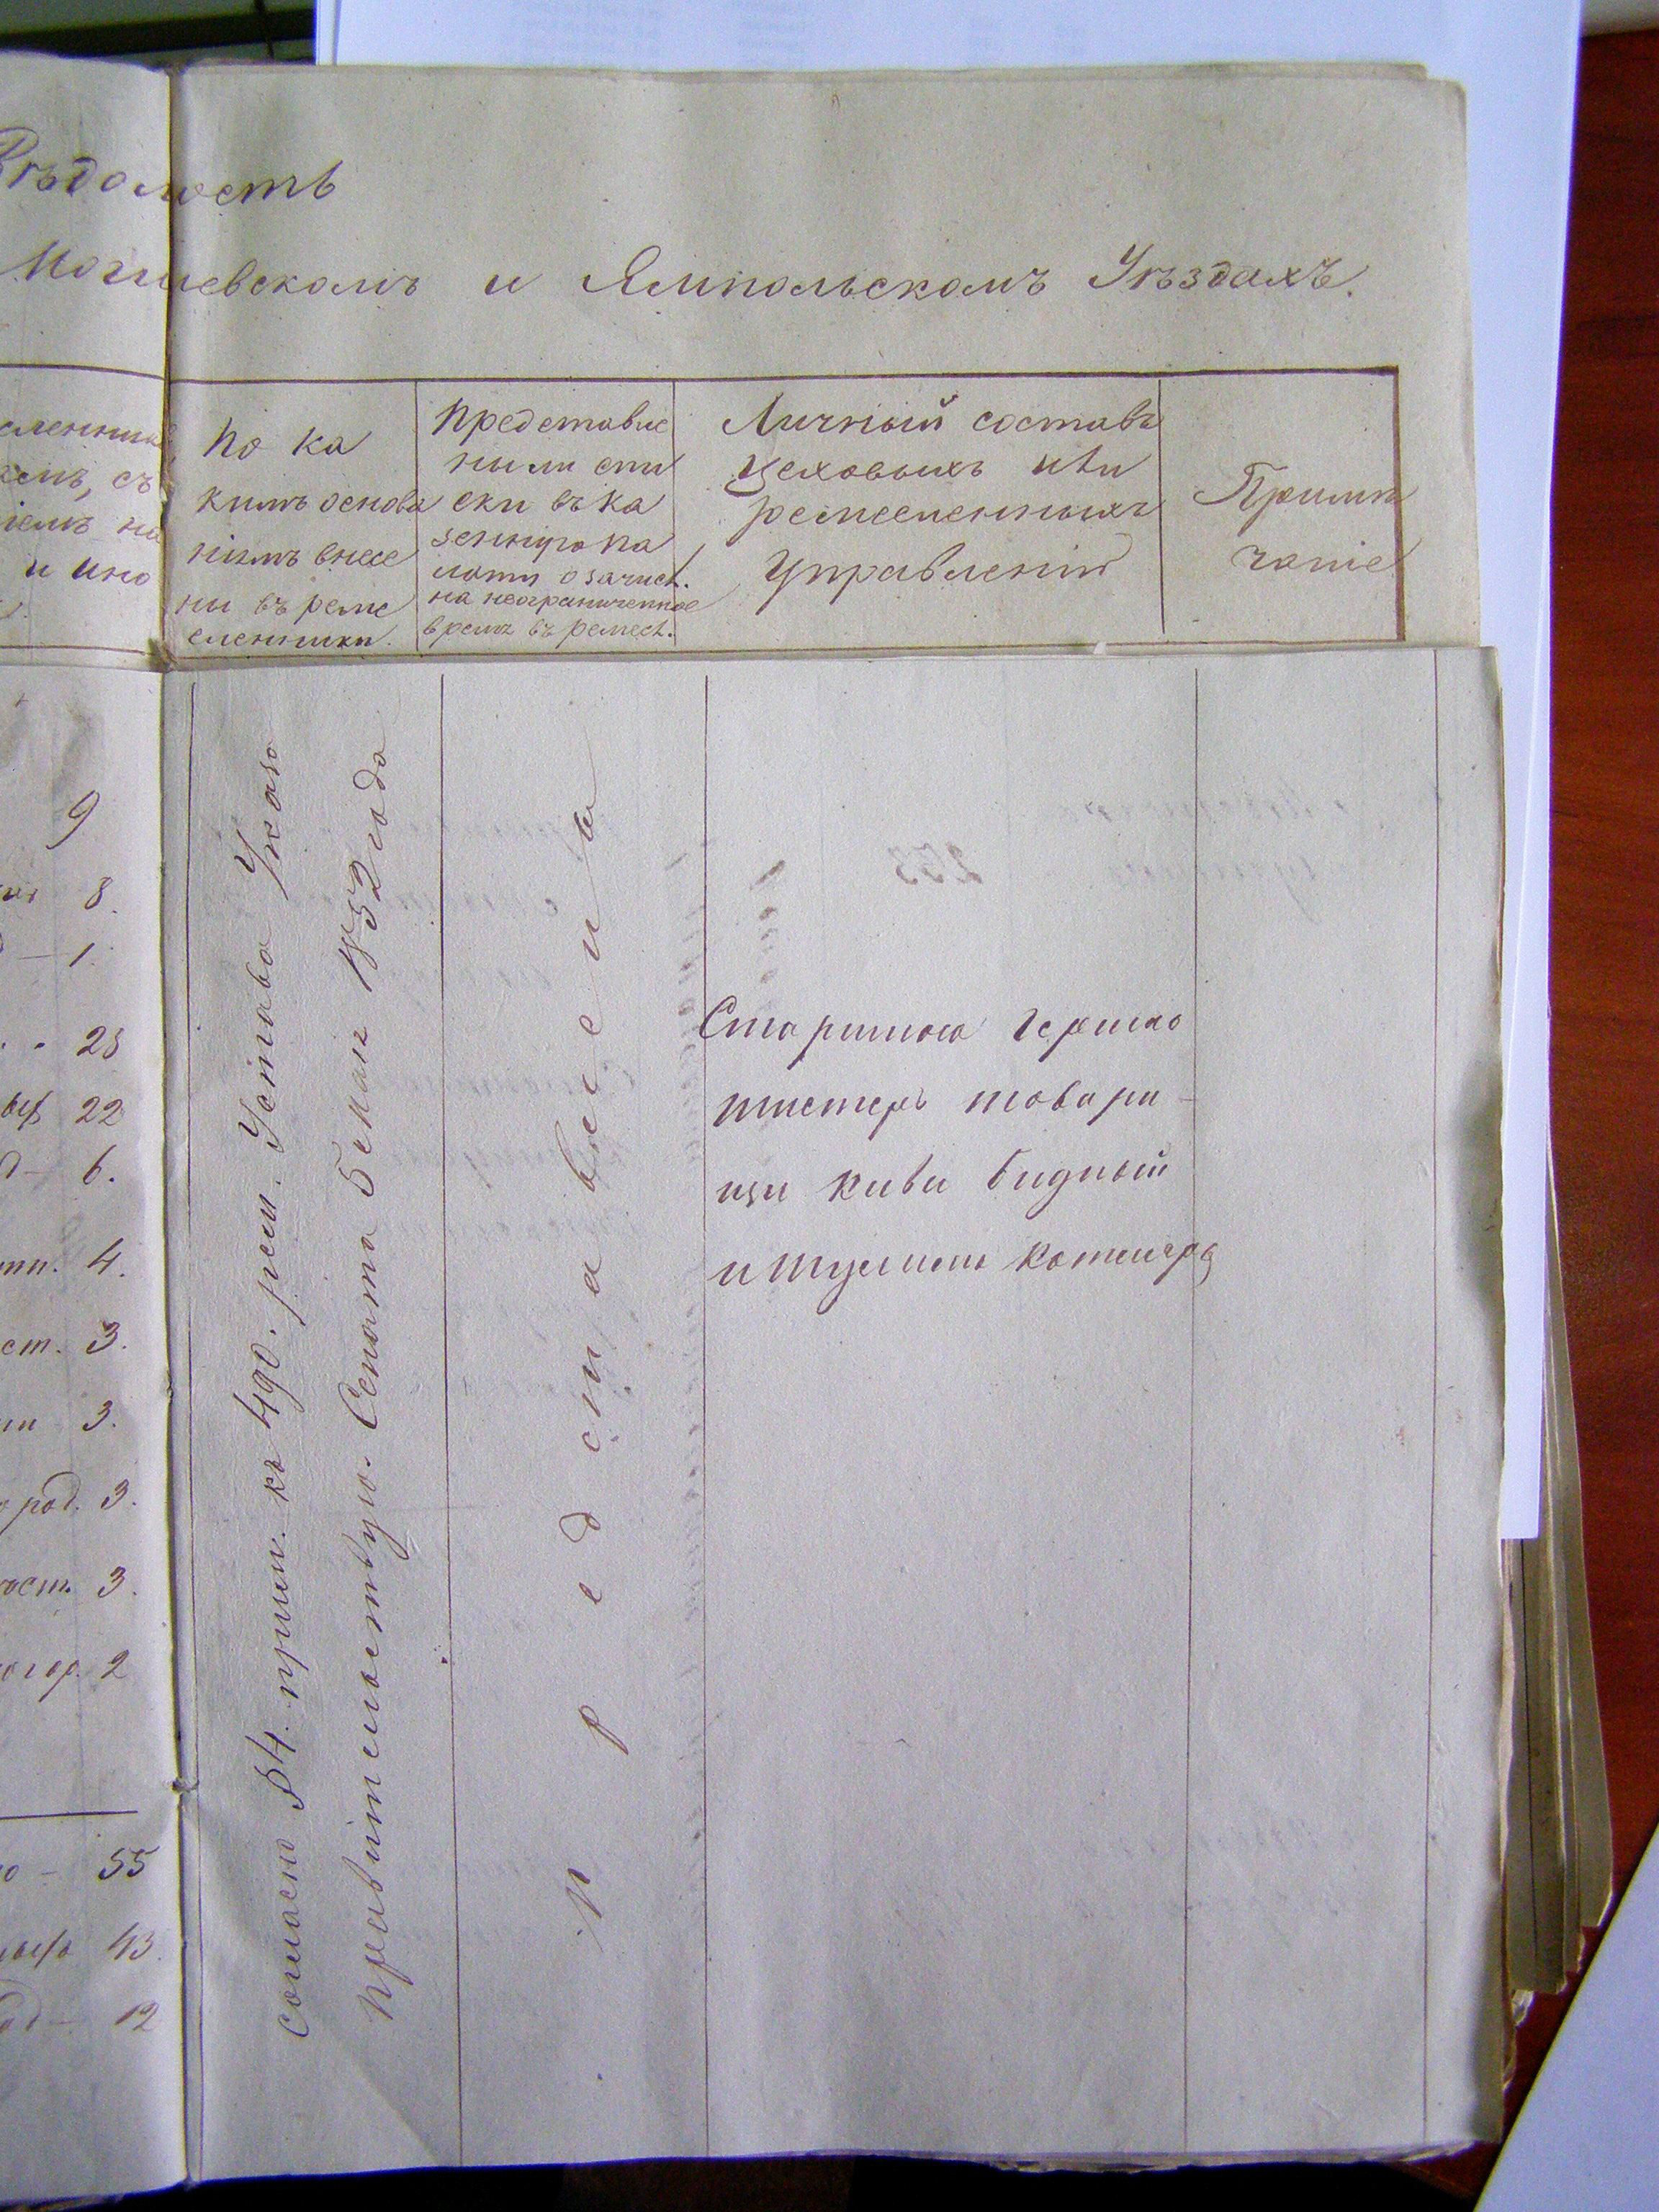 Вѣдомость
Могилевскомъ и Ямпольскомъ Уѣздахъ.
По ка
кимъ основа
ніямъ внесе
ны въ реме
сленники.
Представле
ны ли спи
ски въ ка
зенную па
лату о зачисл.
на неограниченное
время въ ремесл.
Личный составъ
цеховыхъ или
ремесленныхъ
управленій
Примѣ
чаніе
9
8.
— 1.
28
22
6.
4.
ст. 3.
3.
род. 3.
3.
2
55
43.
12
Согласно 54. прим. къ 490. рем. Устава Указа
Правительствую. Сената 5 мая 1852 года
Представлены
Старшина Гершко
товари-
щи Киви Бидный
и